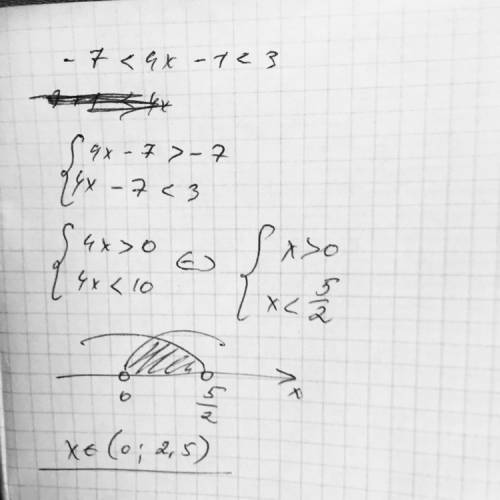 -7 < 4x - 7 < 3
{ 4x - 7 > -7
4x - 7 < 3
{ 4x > 0
4x < 10
⇔
{ x > 0
x < 5/2
0 5/2 x
x ∈ (0; 2,5)